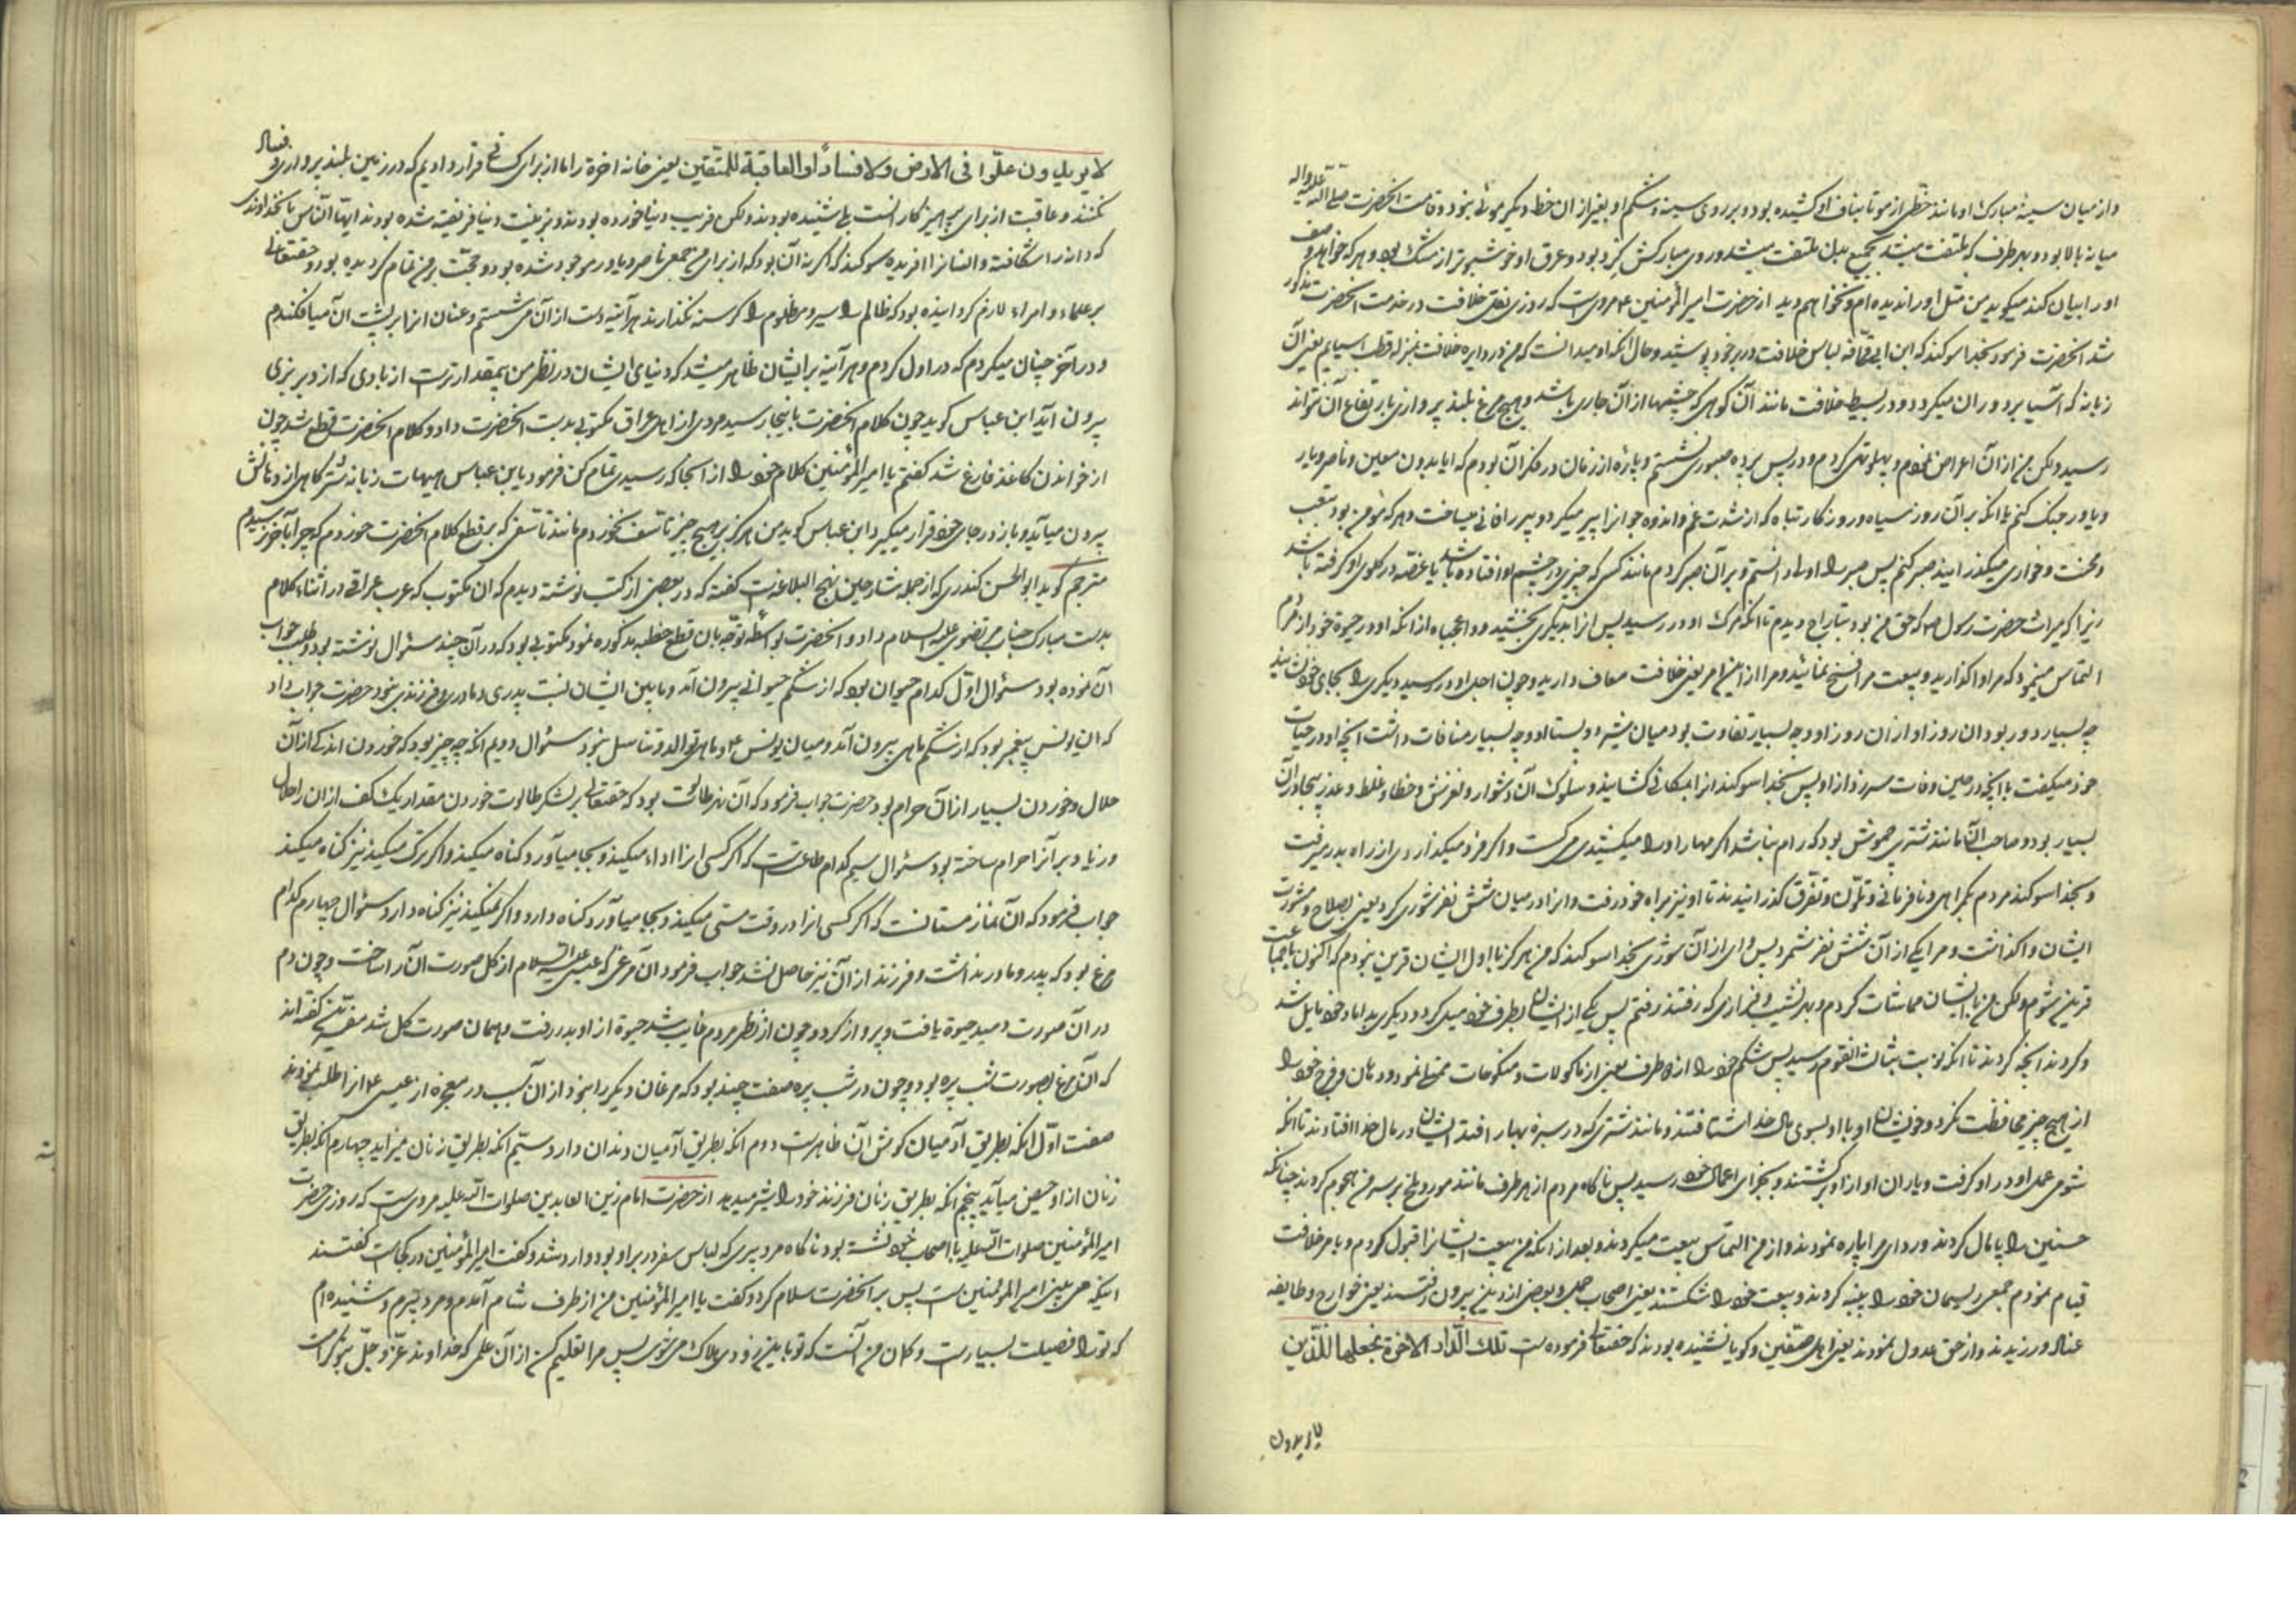 واز میان سینهٔ مبارک او مانند خطی از مو تا بناف او کشیده بود و بر روی سینه و شکم او بغیر از ان خط دیگر موئی نبود و قامت انحضرت صلی الله علیه واله
میانه بالا بود و بهر طرف که ملتفت میشد بجمیع بدن ملتفت میشد و روی مبارکش کرد بود و عرق او خوشبوتر از مشک بود و هر که خواهد وصف
او را بیان کند میکوید من مثل او را ندیده‌ام و نخواهم دید از حضرت امیر المؤمنین ع مرویست که روزی نقل خلافت در خدمت انحضرت مذکور
شد انحضرت فرمود بخدا سوکند که ابن ابی قحافه لباس خلافت در بر خود پوشید و حال انکه او میدانست که من در دایره خلافت بمنزله قطب اسیایم یعنی آن
زبانه که آسیا بر دوران میکردد و در بسیط خلافت مانند آن کوهی که چشمها از آن جاری باشد و هیچ مرغ بلند پروازی بارتفاع آن نتواند
رسید ولکن من از آن اعراض نمودم و پهلو تهی کردم و در پس پرده صبوری نشستم و پارهٔ از زمان در فکر آن بودم که ایا بدون معین و ناصر و یار
و یاور جنک کنم یا انکه بر آن روز سیاه و روزکار تباه که از شدت غم و اندوه جوانرا پیر میکرد و پیر را فانی میساخت و هر که مؤمن بود بتعب
و محنت و خواری میکذرانید صبر کنم پس صبر را اولی دانستم و بر آن صبر کردم مانند کسی که چیزی در چشم او افتاده باشد یا غصّه در کلوی او کرفته باشد
زیرا که میراث حضرت رسول ص که حق من بود بتاراج دیدم تا انکه مرک او در رسید پس انرا بدیکری بخشید و واعجباه از انکه او در حیوة خود از مردم
التماس مینمود که مرا واکذارید و بیعت مرا فسخ نمائید و مرا از این امر یعنی خلافت معاف دارید و چون اجل او در رسید دیکری را بجای خود نشانید
چه بسیار دور بود ان روز او از ان روز او و چه بسیار تفاوت بود میان شیر دو پستان او و چه بسیار منافات داشت انچه او در حیات
خود میکفت با انچه در حین وفات سر زد از او پس بخدا سوکند انرا بمکانی کشانید و سلوک ان دشوار و لغزش و خطا و غلط و عذر بیجا در آن
بسیار بود و صاحب آن مانند شتری چموش بود که رام نباشد اکر مهار او را میکشیدی میکسست و اکر فرو میکذاردی از راه بدر میرفت
و بخدا سوکند مردم بکمراهی و نافرمانی و تلوّن و تفرق کذرانیدند تا او نیز براه خود رفت و انرا در میان شش نفر شوری کرد یعنی بصلاح و مشورت
ایشان واکذاشت و مرا یکی از آن شش نفر شمرد پس وای از آن شوری بخدا سوکند که من هرکز با اول ایشان قرین نبودم که اکنون با جماعت
قرین شوم ولکن من با ایشان مماشات کردم و بهر نشیب و فرازی که رفتند رفتم پس یکی از ایشان بطرف خود میل کرد و دیکری بداماد خود مایل شد
و کردند انچه کردند تا انکه نوبت بثالث القوم رسید پس شکم خود را از دو طرف یعنی از ماکولات و منکوحات ممتلی نمود و دهان و فرج خود را
از هیچ چیز محافظت نکرد و خویشان او با او بسوی مال خدا شتافتند و مانند شتری که در سبزه بهار افتد ایشان در مال خدا افتادند تا انکه
شومی عمل او در او کرفت و یاران او از او برکشتند و بجزای اعمال خود رسید پس ناکاه مردم از هر طرف مانند مور و ملخ بر سر من هجوم کردند چنانکه
حسنین را پامال کردند و ردای مرا پاره نمودند و از من التماس بیعت میکردند و بعد از انکه من بیعت ایشانرا قبول کردم و بامر خلافت
قیام نمودم جمعی ریسمان خود را پنبه کردند و بیعت خود را شکستند یعنی اصحاب جمل و بعضی از دین بیرون رفتند یعنی خوارج و طایفه
عناد ورزیدند و از حق عدول نمودند یعنی اهل صفّین و کویا نشنیده بودند که حقتعالی فرموده است تلک الدّار الاخرة نجعلها للّذین
لا یریدون
لا یریدون علوّا فی الارض ولا فسادًا والعاقبة للمتّقین یعنی خانه اخرة را ما از برای کسانی قرار دادیم که در زمین بلند پروازی و فساد
نکنند و عاقبت از برای پرهیزکار انست بلی شنیده بودند ولکن فریب دنیا خورده بودند و بزینت دنیا فریفته شده بودند ایها النّاس بخداوندی
که دانه را شکافته و انسانرا افریده سوکند که اکر نه آن بود که از برای من جمعی ناصر و یاور موجود شده بود و حجّت بر من تمام کردیده بود و حقتعالی
بر علماء و امراء لازم کردانیده بود که ظالم را سیر و مظلوم را کرسنه نکذارند هر آینه دست از آن می شستم و عنان انرا بر پشت ان میافکندم
و در آخر چنان میکردم که در اول کردم و هر آینه بر ایشان ظاهر میشد که دنیای ایشان در نظر من بیمقدارتر است از بادی که از دبر بزی
بیرون آید ابن عباس کوید چون کلام انحضرت باینجا رسید مردی از اهل عراق مکتوبی بدست انحضرت داد و کلام انحضرت قطع شد چون
از خواندن کاغذ فارغ شد کفتم یا امیر المؤمنین کلام خود را از انجا که رسیدی تمام کن فرمود یابن عباس هیهات زبانه شتر کاهی از دهانش
بیرون میآید و باز در جای خود قرار میکیرد ابن عباس کوید من هرکز بر هیچ چیز تاسف نخوردم مانند تاسفی که بر قطع کلام انحضرت خوردم که چرا باخر نرسیدم
مترجم کوید ابو الحسن کندری که از جمله شارحین نهج البلاغه است کفته که در بعضی از کتب نوشته دیدم که ان مکتوب که عرب عراقی در اثناء کلام
بدست مبارک جناب مرتضوی علیه السلام داد و انحضرت بواسطه توجه بان قطع خطبه مذکوره نمود مکتوبی بود که در آن چند سئوال نوشته بود و طلب جواب
آن نموده بود سئوال اوّل کدام حیوان بود که از شکم حیوانی بیرون آمد و مابین ایشان نسبت پدری و مادری و فرزندی نبود حضرت جواب داد
که ان یونس پیغمبر بود که از شکم ماهی بیرون آمد و میان یونس ع و ماهی توالد و تناسل نبود سئوال دویم انکه چه چیز بود که خوردن اندکی از آن
حلال و خوردن بسیار از آن حرام بود حضرت جواب فرمود که آن نهر طالوت بود که حقتعالی بر لشکر طالوت خوردن مقدار یک کف از ان را حلال
و زیاد بر آنرا حرام ساخته بود سئوال سیم کدام طاعتست که اکر کسی انرا اداء میکند و بجا میآورد کناه میکند و اکر ترک میکند نیز کناه میکند
جواب فرمود که آن نماز مستانست که اکر کسی انرا در وقت مستی میکند و بجا میآورد کناه دارد و اکر نمیکند نیز کناه دارد سئوال چهارم کدام
مرغ بود که پدر و مادر نداشت و فرزند از آن نیز حاصل نشد جواب فرمود آن مرغی که عیسی علیه السلام از کل صورت آن را ساخت و چون دم
در آن صورت دمید حیوة یافت و پرواز کرد و چون از نظر مردم غایب شد حیوة از او بدر رفت و همان صورت کل شد مفسرین کفته‌اند
که آن مرغ بصورت شب پره بود و چون در شب پره صفت چند بود که مرغان دیکر را نبود از آن سبب در معجزه از عیسی ع انرا طلب نمودند
صفت اوّل انکه بطریق آدمیان کوش آن ظاهر است دوم انکه بطریق آدمیان دندان دارد سیّم انکه بطریق زنان میزاید چهارم انکه بطریق
زنان از او حیض میآید پنجم انکه بطریق زنان فرزند خود را شیر میدهد از حضرت امام زین العابدین صلوات الله علیه مرویست که روزی حضرت
امیر المؤمنین صلوات الله علیه با اصحاب خود نشسته بود ناکاه مرد پیری که لباس سفر در بر او بود وارد شد و کفت امیر المؤمنین در کجاست کفتند
اینکه می بینی امیر المؤمنین است پس بر انحضرت سلام کرد و کفت یا امیر المؤمنین من از طرف شام آمدم و مرد پیرم و شنیده‌ام
که تو را فضیلت بسیار است و کمان من آنست که تو باین زودی هلاک می شوی پس مرا تعلیم کن از آن علمی که خداوند عزّ و جلّ بتو کرامت